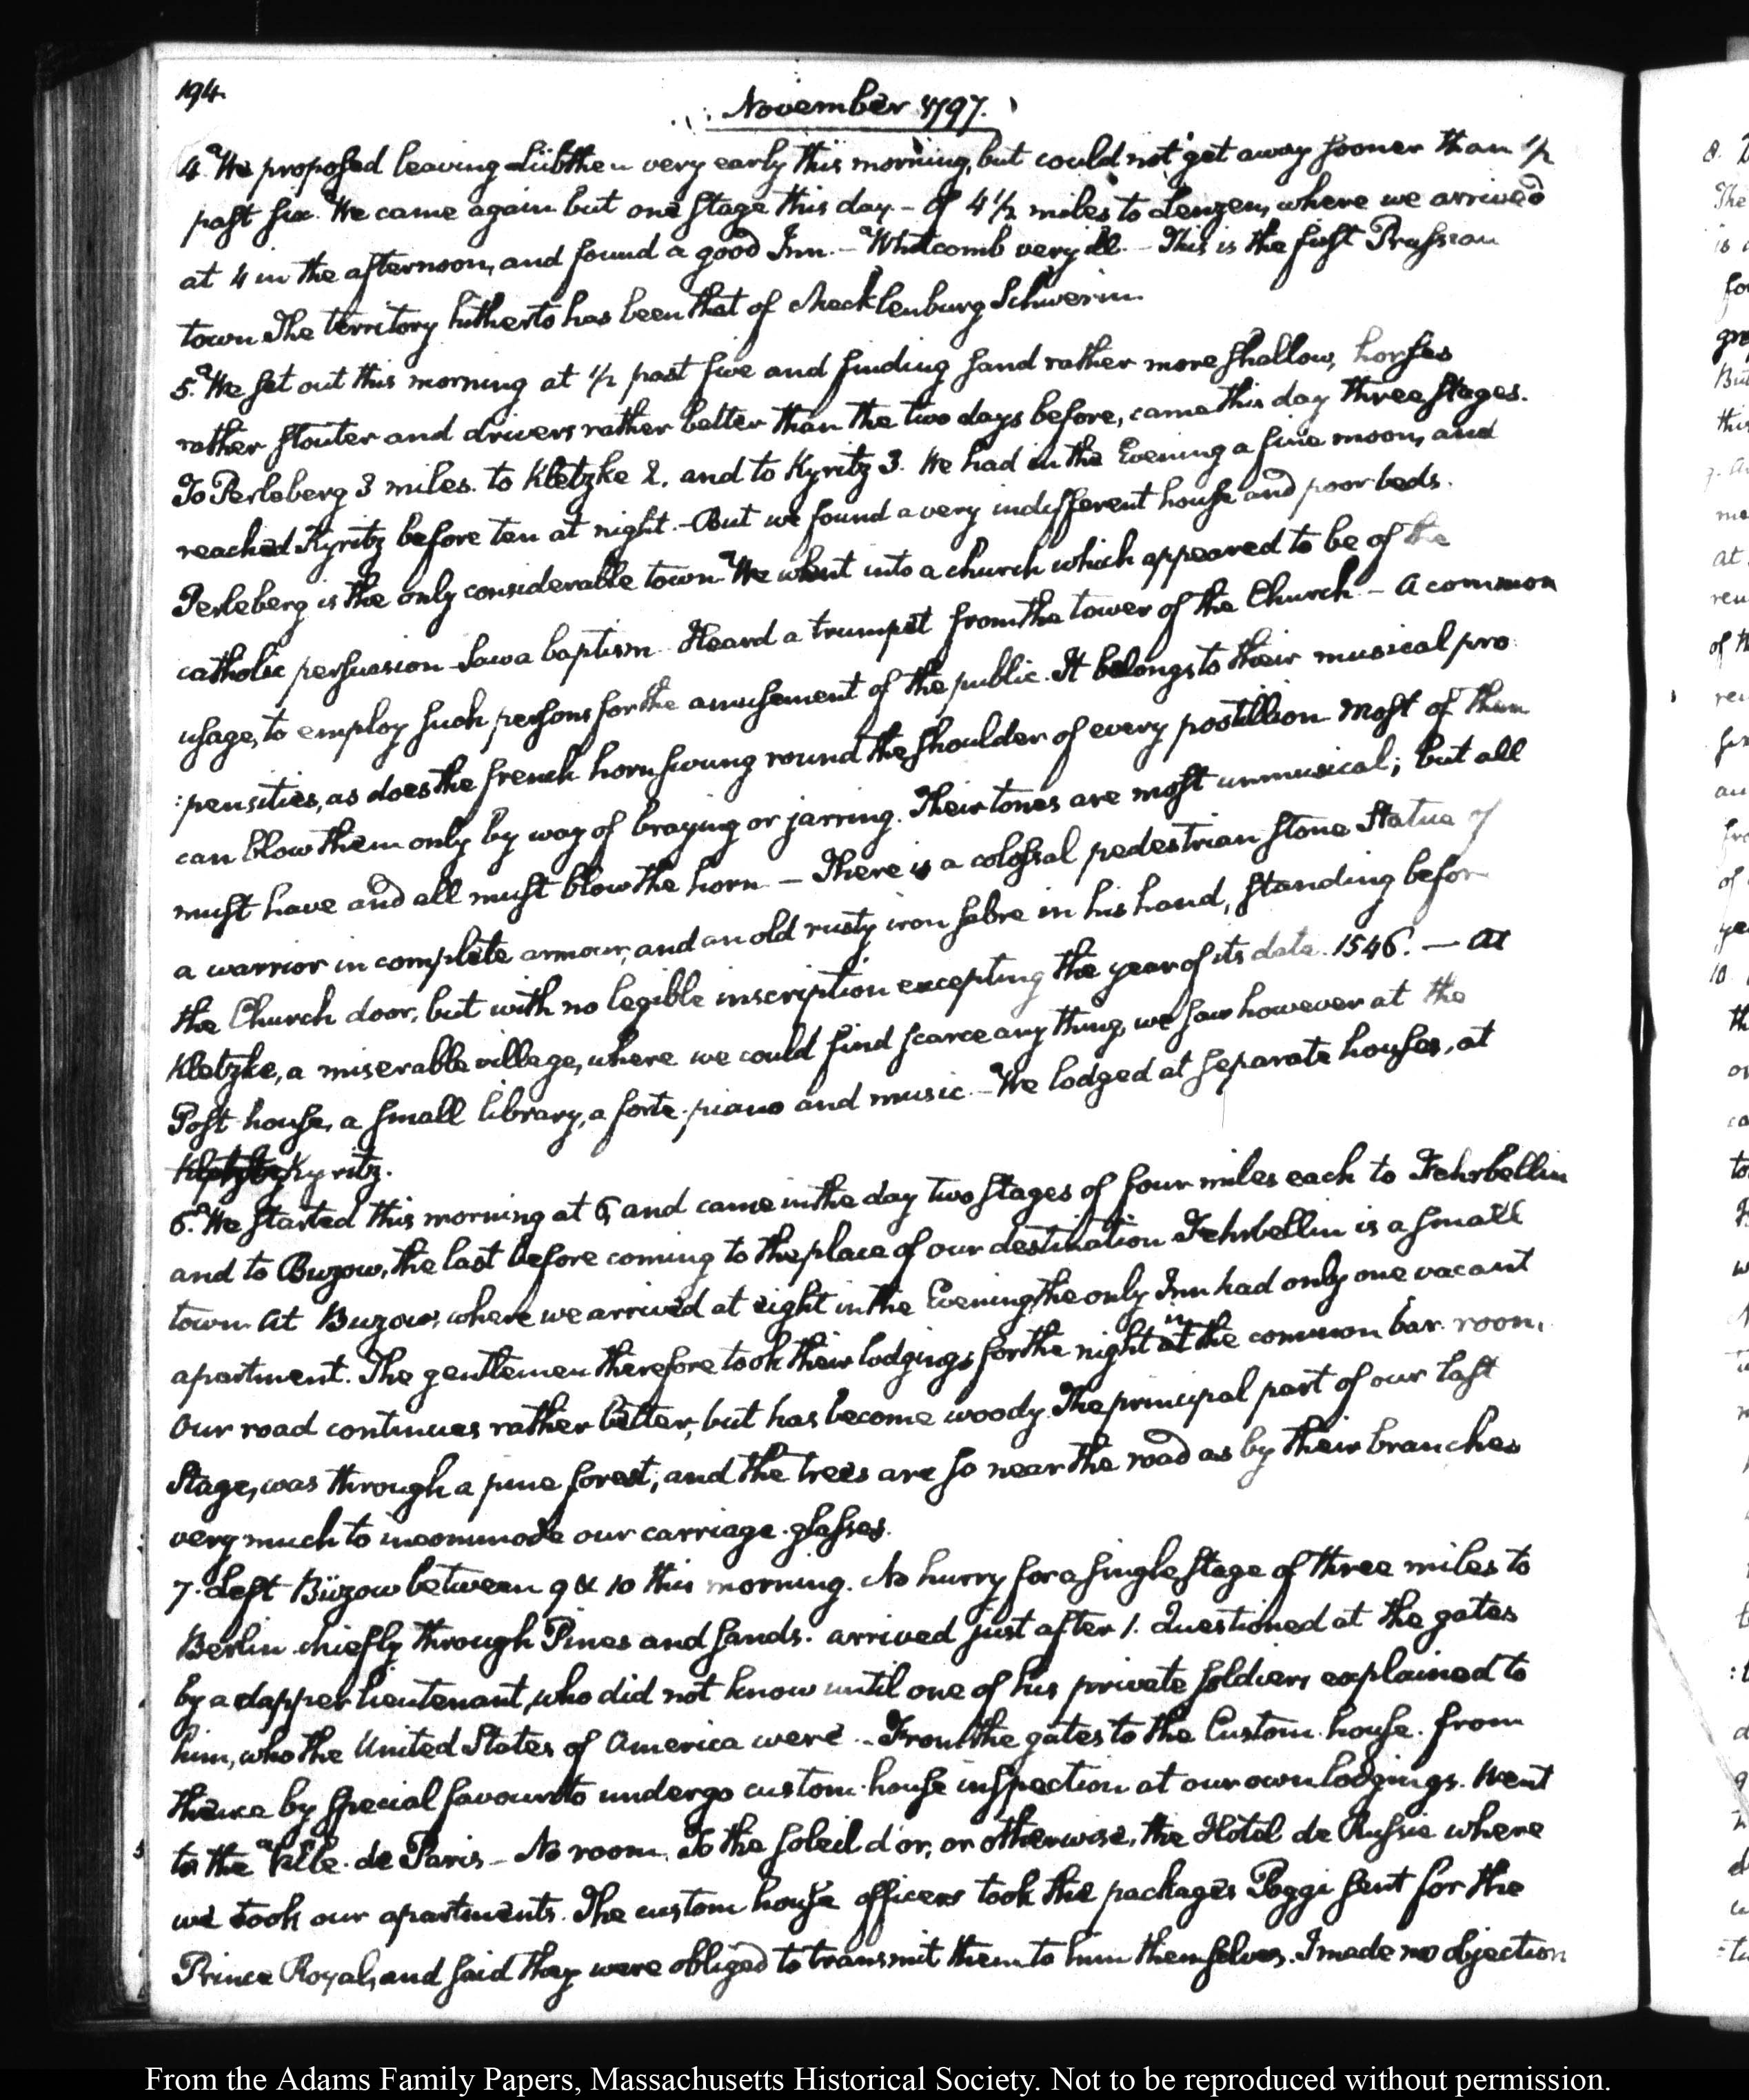 194.
November 1797.
4. We proposed leaving Lübtheu very early this morning, but could not get away sooner than 1/2
past six. We came again but one stage this day – of 4 1/2 miles to Lenzen, where we arrived
at 4 in the afternoon, and found a good Inn. – Whitcomb very ill. – This is the first Prussian
town The territory hitherto has been that of Mecklenburg Schwerin.
5. We set out this morning at 1/2 past five and finding sand rather more shallow, horses
rather stouter and drivers rather better than the two days before, came this day three stages.
To Perleberg 3 miles. to Kletzke 2. and to Kyritz 3. We had in the Evening a fine moon, and
reached Kyritz before ten at night. – But we found a very indifferent house and poor beds.
Perleberg is the only considerable town. We went into a church which appeared to be of the
catholic persuasion – Saw a baptism. Heard a trumpet from the tower of the Church – A common
usage, to employ such persons for the amusement of the public. It belongs to their musical pro
:pensities, as does the french horn swung round the shoulder of every postillion most of them
can blow them only by way of braying or jarring. Their tones are most unmusical; but all
must have and all must blow the horn – There is a colossal pedestrian stone Statue of
a warrior in complete armour, and an old rusty iron sabre in his hand, standing before
the Church door, but with no legible inscription excepting the year of its date. 1546. — At
Kletzke, a miserable village, where we could find scarce any thing, we saw however at the
Post-house, a small library, a forte-piano and music. – We lodged at separate houses, at
Kletzke Kyritz.
6. We started this morning at 6, and came in the day two stages of four miles each to Fehrbellin
and to Buzow, the last before coming to the place of our destination Fehrbellin is a small
town. At Buzow, where we arrived at eight in the Evening, the only Inn had only one vacant
apartment. The gentlemen therefore took their lodgings for the night at in the common bar-room.
Our road continues rather better, but has become woody. The principal part of our last
Stage, was through a pine forest; and the trees are so near the road as by their branches
very much to incommode our carriage-glasses.
7. Left Büzow between 9 & 10 this morning. No hurry for a single stage of three miles to
Berlin chiefly through Pines and sands. arrived just after 1. Questioned at the gates
by a dapper lieutenant, who did not know until one of his private soldiers explained to
him, who the United States of America were. – From the gates to the Custom-house. from
thence by special favour to undergo custom-house inspection at our own lodgings. Went
to the Ville-de Paris – No room. To the Soleil d'or, or otherwise, the Hotel de Russie where
we took our apartments. The custom house officers took the packages Poggi sent for the
Prince Royal, and said they were obliged to transmit them to him themselves. I made no objection
From the Adams Family Papers, Massachusetts Historical Society. Not to be reproduced without permission.